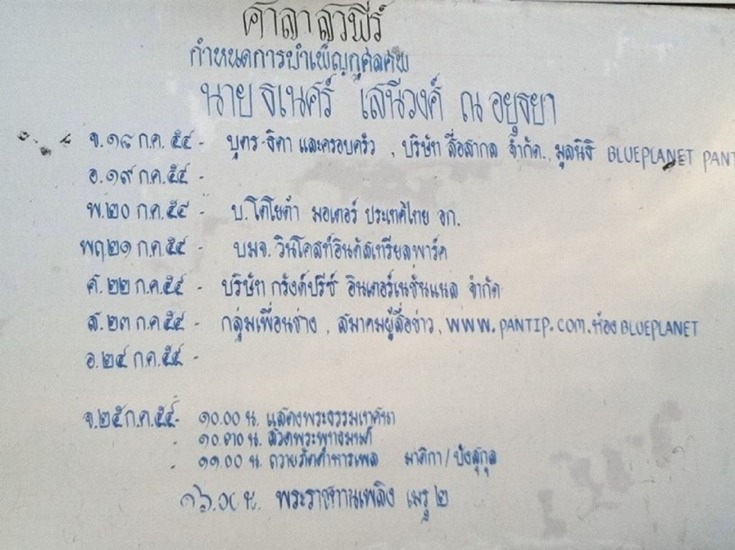 ศาลาลวพีร์
กำหนดการบำเพ็ญกุศลศพ
นาย ธเนศร์ เสนีวงศ์ ณ อยุธยา
จ.๑๘ ก.ค. ๕๔ - บุตร-ธิดา และครอบครัว , บริษัท สื่อสากล จำกัด., มูลนิธิ BLUEPLANET PANT
อ.๑๙ ก.ค. ๕๔ -
พ.๒๐ ก.ค. ๕๔ - บ.โตโยต้า มอเตอร์ ประเทศไทย จก.
พฤ๒๑ ก.ค. ๕๔ - บมจ. วินโคสท์อินดัสเทรียลพาร์ค
ศ. ๒๒ ก.ค. ๕๔ - บริษัท กรังด์ปรีซ์ อินเตอร์เนชั่นแนล จำกัด
ส. ๒๓ ก.ค. ๕๔ - กลุ่มเพื่อนช่าง , สมาคมผู้สื่อข่าว, WWW.PANTIP.COM.ห้อง BLUEPLANET
อ.๒๔ ก.ค. ๕๔ -
จ.๒๕ ก.ค. ๕๔- ๑๐.๐๐ น. แสดงพระธรรมเทศนา
- ๑๐.๓๐ น. สวดพระพุทธมนต์
- ๑๑.๐๐ น. ถวายภัตตาหารเพล มาติกา / บังสุกุล
๑๖.๐๐ น. พระราชทานเพลิง เมรุ ๒